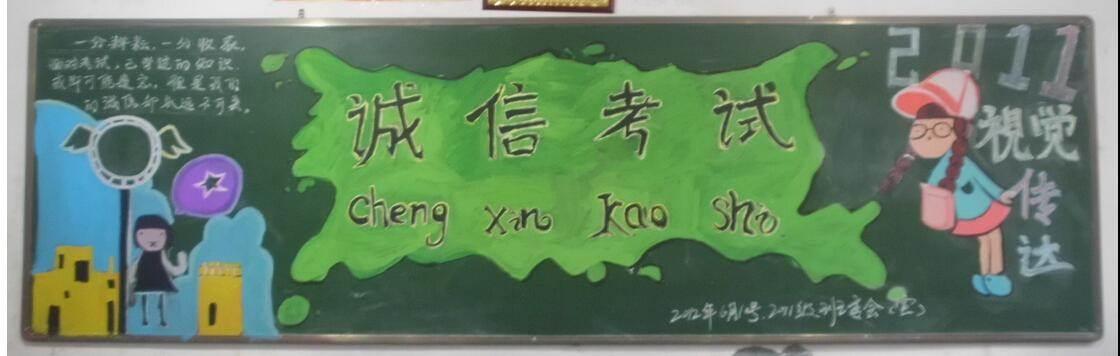 一分耕耘，一分收获。
面对考试，已考过的知识
或许可能遗忘，但是我们
的诚信却永远不可丢。
诚信考试
cheng xin kao shi
2011
视觉
传达
2012年6月1号.2011级班委会(宣)